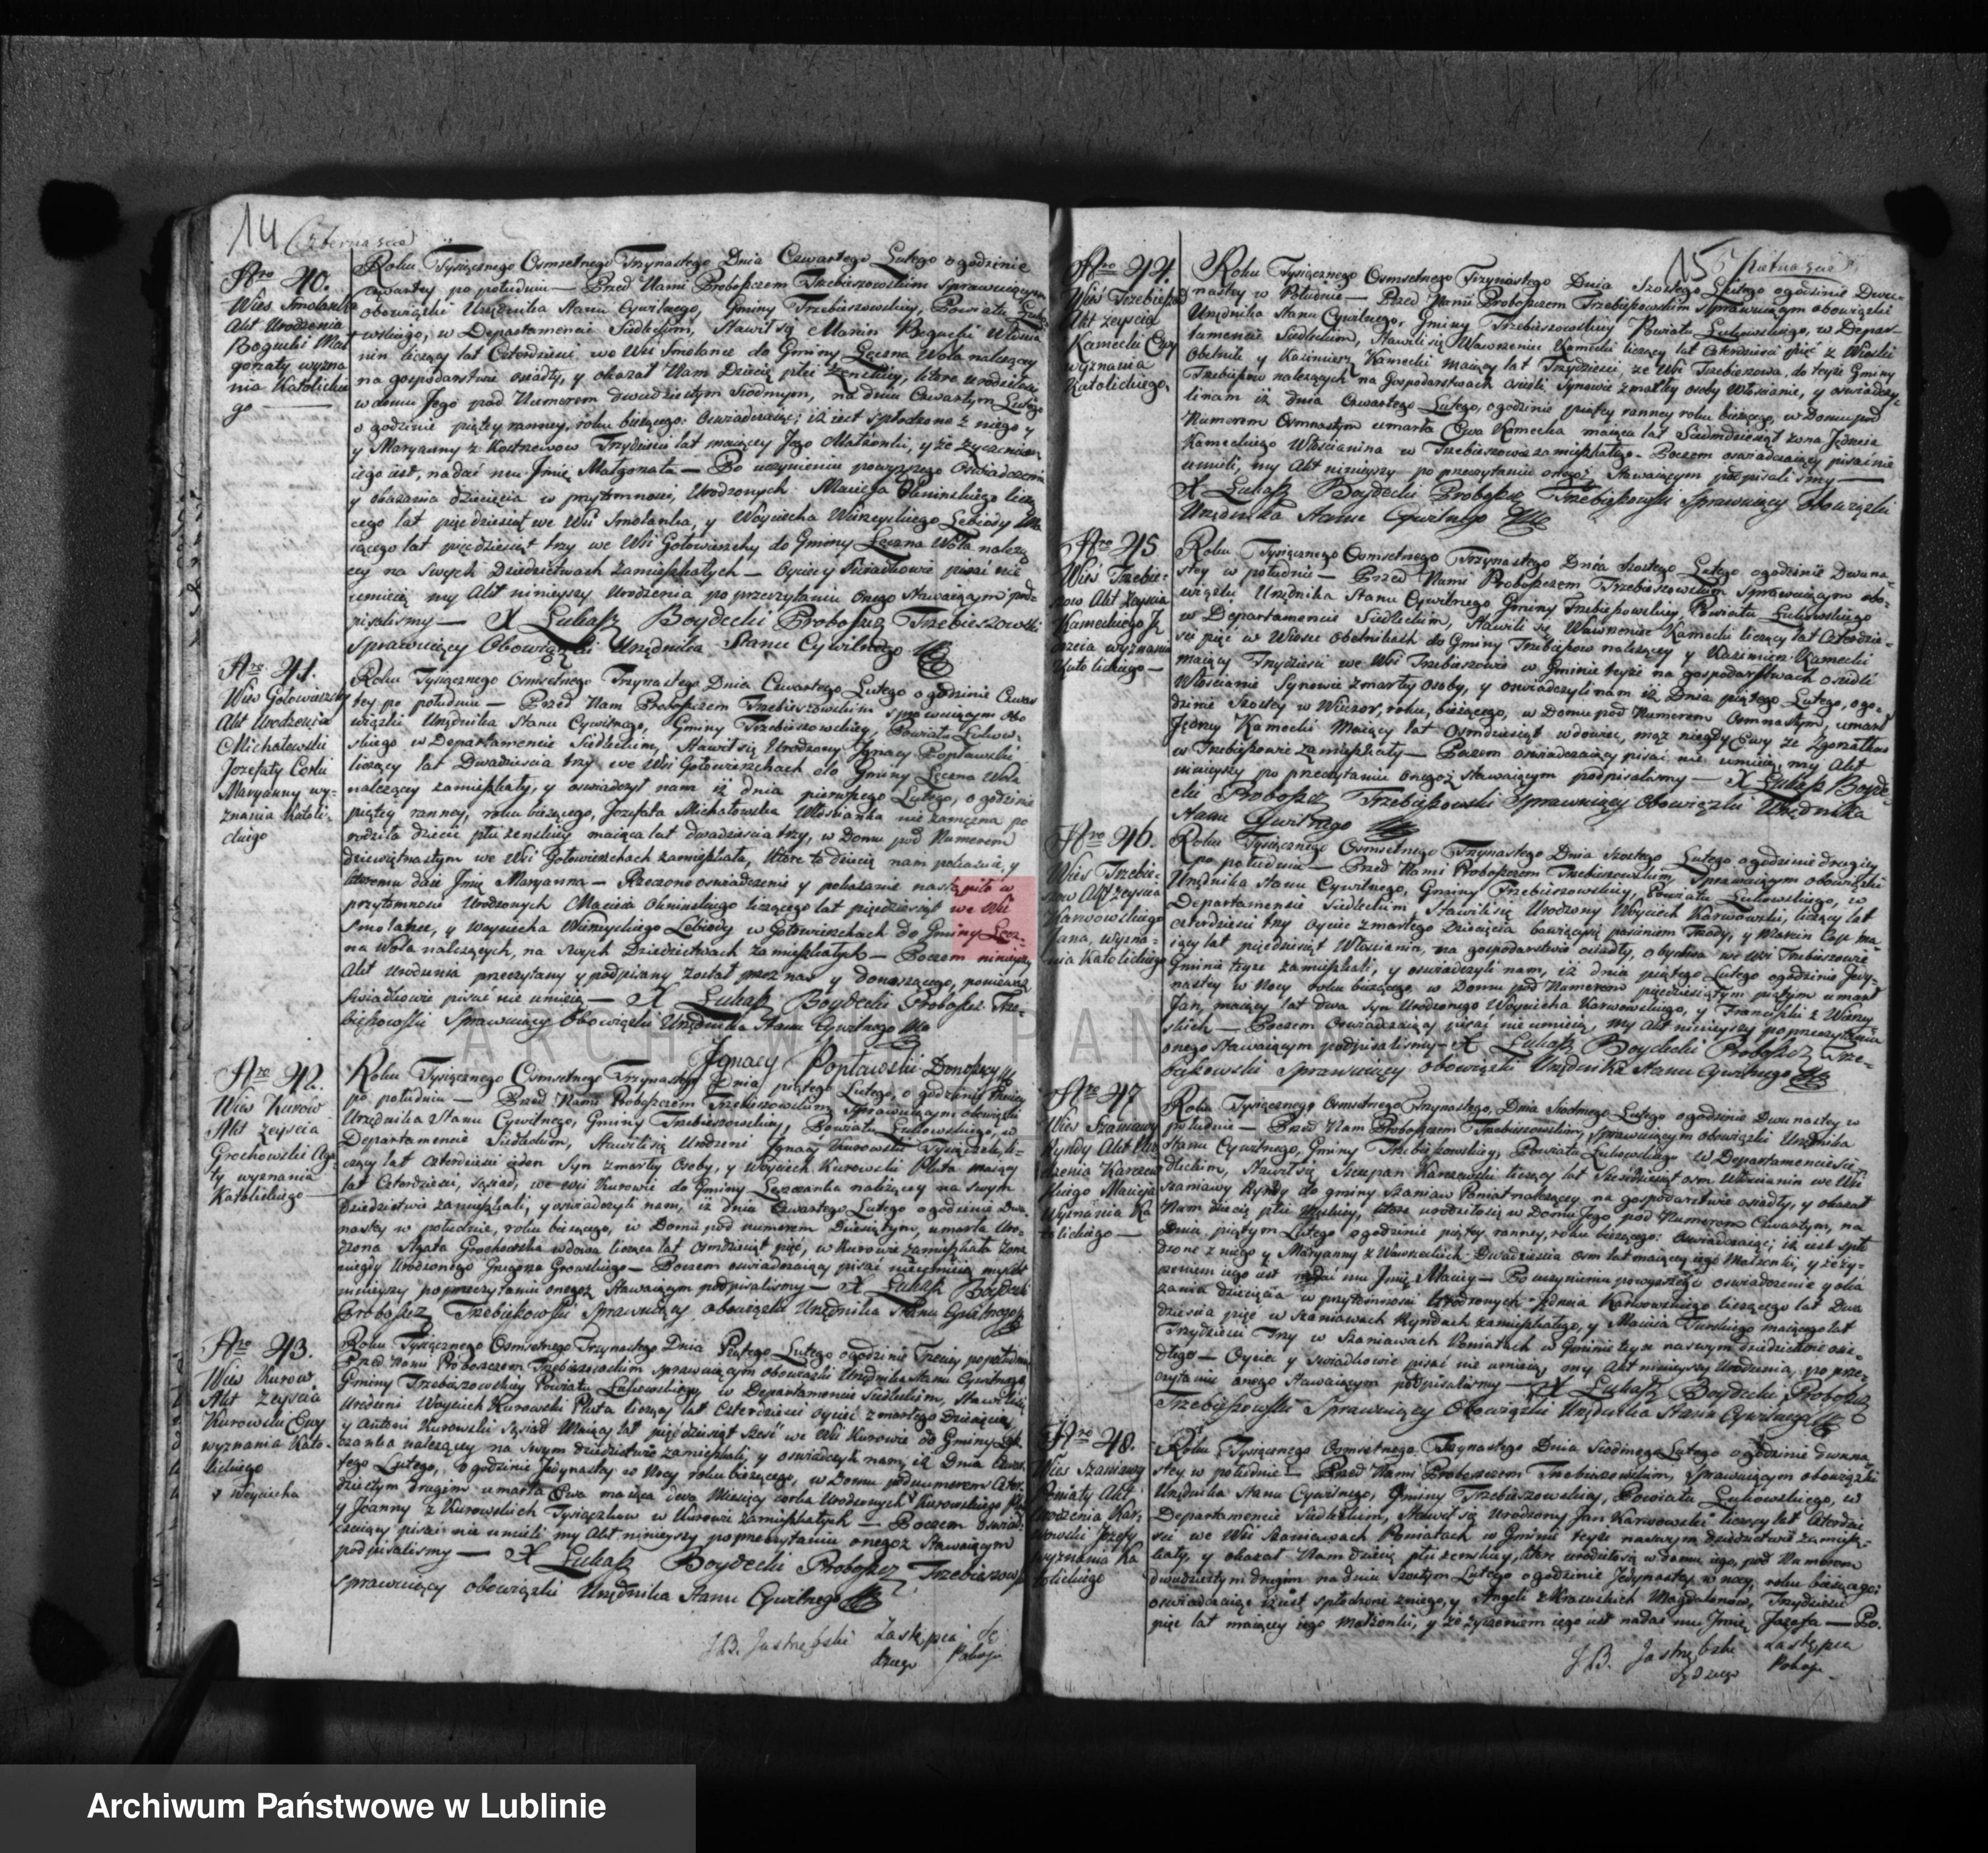 14 (Czternaście)
Nro 40.
Wieś Smolanka
Akt Urodzenia
Bogucki Mał
gorzaty wyzna
nia Katolickie
go
Roku Tysiącznego Osmsetnego Trzynastego Dnia Czwartego Lutego o godzinie
czwartey po południu — Przed Nami Proboszczem Trzebieszowskim Sprawuiącym
obowiązki Urzędnika Stanu Cywilnego, Gminy Trzebieszowskiey, Powiatu Łuko
wskiego, w Departamencie Siedleckim, Stawił się Marcin Bogucki Włościa
nin liczący lat Czterdzieści we Wsi Smolance do Gminy Łęczna Wola należącey
na gospodarstwie osiadły, y okazał Nam Dziecię płci żeńskiey, które urodziło się
w domu Jego pod Numerem dwudziestym Siodmym, na dniu Czwartym Lutego
o godzinie piątey ranney, roku bieżącego: Oswiadczaiąc; iż iest spłodzone z niego y
y Maryanny z Trzydzieści lat maiącey Jego Małżonki, y że życzeniem
iego iest, nadać mu Jmię Małgorzata — Po uczynieniu powyższego Oświadczenia
y okazania dziecięcia w przytomności, Urodzonych Macieja Olenińskiego licz
ącego lat pięćdziesiąt we Wsi Smolanka, y Woyciecha Lebiody Ma
iącego lat pięćdziesiąt trzy we Wsi Gołowierzchy do Gminy Łęczna Wola należą
cy na Swych Dziedzictwach Zamieszkałych — Oyciec y Swiadkowie pisać nie
umieią my Akt ninieyszy Urodzenia po przeczytaniu onego Stawaiącym pod
pisaliśmy — X Łukasz Boydecki Proboszcz Trzebieszowski
Sprawuiący Obowiązki Urzędnika Stanu Cywilnego
Nro 41.
Wieś Gołowierzchy
Akt Urodzenia
Michałowski
Jozefaty Corki
Maryanny wy-
znania Katoli-
ckiego
Roku Tysiącznego Osmsetnego Trzynastego Dnia Czwartego Lutego o godzinie Czwar
tey po południu — Przed Nam Proboszczem Trzebieszowskim sprawuiącym obo
wiązki Urzędnika Stanu Cywilnego, Gminy Trzebieszowskiey, Powiatu Łukow-
skiego w Departamencie Siedleckim, Stawił się Urodzony Ignacy Popławski
liczący lat Dwadzieścia trzy we Wsi Gołowierzchach do Gminy Łęczna Wola
należący zamieszkały, y oświadczył nam iż dnia pierwszego Lutego, o godzinie
piątey ranney, roku bieżącego, Jozefata Michałowska Włościanka nie zamężna po
rodziła dziecię płci żeńskiey maiąca lat dwadzieścia trzy, w Domu pod Numerem
dziewiętnastym we Wsi Gołowierzchach zamieszkała, Które to dziecię nam pokazuie y
któremu daie Jmię Maryanna — Rzeczone oswiadczenie y pokazanie nastąpiło w
przytomności Urodzonych Macieia Olenińskiego liczącego lat pięćdziesiąt we Wsi
Smolance, y Woyciecha Lebiody w Gołowierzchach do Gminy Łęcz-
na Wola należących, na Swych Dziedzictwach Zamieszkałych — Poczem ninieyszy
Akt Urodzenia przeczytany y podpisany został przez nas y donoszącego, ponieważ
Swiadkowie pisać nie umieią — X Łukasz Boydecki Proboszcz Trze-
bieszowski Sprawuiący Obowiązki Urzędnika Stanu Cywilnego
Jgnacy Popławski Donoszący
Nro 42.
Wieś Kurów
Akt Zeyscia
Grochowski Aga-
ty wyznania
Katolickiego
Roku Tysiącznego Osmsetnego Trzynastego Dnia piątego Lutego, o godzinie trzeciey
po południu — Przed Nami Proboszczem Trzebieszowskim Sprawuiącym obowiązki
Urzędnika Stanu Cywilnego, Gminy Trzebieszowskiey, Powiatu Łukowskiego, w
Departamencie Siedleckim, Stawili się Urodzeni Jgnacy Kurowski Tysiączek, li-
czący lat czterdzieści ieden Syn zmarłey Osoby, y Woyciech Kurowski Pluta maiący
lat Czterdzieści, Sąsiad, we Wsi Kurowie do Gminy Leszczanka należącey na Swym
Dziedzictwie zamieszkali, y oswiadczyli nam, iż dnia Czwartego Lutego o godzinie Dwu
nastey w południe, roku bieżącego, w Domu pod numerem Dziesiątym, umarła Uro-
dzona Agata Grochowska wdowa licząca lat Osmdziesiąt pięć, w Kurowie zamieszkała żona
niegdy Urodzonego — Poczem oswiadczaiący pisać nie umieią my Akt
ninieyszy po przeczytaniu onegoż Stawaiącym podpisaliśmy — X Łukasz Boydecki
Proboszcz Trzebieszowski Sprawuiący obowiązki Urzędnika Stanu Cywilnego
Nro 43.
Wieś Kurów
Akt Zeyscia
Kurowski Ewy
wyznania Kato-
lickiego
y Woyciecha
Roku Tysiącznego Osmsetnego Trzynastego Dnia Piątego Lutego o godzinie Trzeciey po południu
Przed Nami Proboszczem Trzebieszowskim sprawuiącym obowiązki Urzędnika Stanu Cywilnego
Gminy Trzebieszowskiey Powiatu Łukowskiego w Departamencie Siedleckim, Stawili się
Urodzeni Woyciech Kurowski Pluta liczący lat Czterdzieści oyciec zmarłego Dziecięcia
y Antoni Kurowski Sąsiad Maiący lat pięćdziesiąt Sześć we Wsi Kurowie do Gminy Lesz
czanka należącey na Swym dziedzictwie zamieszkali, y oswiadczyli nam, iż dnia Czwar
tego Lutego, o godzinie Jedynastey w Nocy roku bieżącego, w Domu pod numerem Czter
dziestym drugim umarła Ewa maiąca dwa Miesięcy corka Urodzonych Kurowskiego
y Joanny z Kurowskich Tysiączkow w Kurowie zamieszkałych — Poczem Oswiad-
czaiący pisać nie umieli my Akt ninieyszy po przeczytaniu onegoż Stawaiącym
podpisaliśmy — X Łukasz Boydecki Proboszcz Trzebieszow
Sprawuiący obowiązki Urzędnika Stanu Cywilnego
J.B. Jastrzębski Zastępca Sę
dziego Pokoju
15 Piętnaście
Nro 44.
Wieś Trzebieszow
Akt Zeyscia
Kamecki Ewy
wyznania
Katolickiego
Roku Tysiącznego Osmsetnego Trzynastego Dnia Szostego Lutego o godzinie Dwu-
nastey w Południe — Przed Nami Proboszczem Trzebieszowskim Sprawuiącym obowiązki
Urzędnika Stanu Cywilnego, Gminy Trzebieszowskiey Powiatu Łukowskiego, w Depar-
tamencie Siedleckim, Stawili się Wawrzeniec Kamecki liczący lat Czterdzieści pięć z Wioski
Obelnik y Kazimierz Kamecki maiący lat Trzydzieści, ze Wsi Trzebieszowa, do teyże Gminy
Trzebieszow należących na Gospodarstwach osiedli, Synowie zmarłey osoby Włościanie, y oswiadczy-
li nam iż dnia Czwartego Lutego, o godzinie piątey ranney roku bieżącego, w Domu pod
Numerem Osmnastym umarła Ewa Kamecka maiąca lat Siedmdziesiąt żona Jędrzeia
Kameckiego Włościanina w Trzebieszowie zamieszkałego — Poczem oswiadczaiący pisać nie
umieli, my Akt ninieyszy po przeczytaniu onegoż Stawaiącym podpisaliśmy —
X Łukasz Boydecki Proboszcz Trzebieszowski Sprawuiący Obowiązki
Urzędnika Stanu Cywilnego
Nro 45
Wieś Trzebie-
szow Akt Zeyscia
Kameckiego Ję
drzeia wyznania
Katolickiego —
Roku Tysiącznego Osmsetnego Trzynastego Dnia Szostego Lutego o godzinie Dwuna-
stey w południe — Przed Nami Proboszczem Trzebieszowskim Sprawuiącym obo-
wiązki Urzędnika Stanu Cywilnego Gminy Trzebieszowskiey Powiatu Łukowskiego
w Departamencie Siedleckim, Stawili się Wawrzeniec Kamecki liczący lat Czterdzie-
ści pięć w Wiosce Obelnikach do Gminy Trzebieszow należący y Kazimierz Kamecki
maiący Trzydzieści we Wsi Trzebieszowie w Gminie teyże na gospodarstwach osiedli
Włościanie Synowie zmarłey Osoby, y oswiadczyli nam iż Dnia piątego Lutego, o go-
dzinie Szostey w Wieczor, roku, bieżącego, w Domu pod Numerem Osmnastym, umarł
Jędrzey Kamecki Maiący lat Osmdziesiąt wdowiec, mąż niegdy Ewy ze Zgonatkow
w Trzebieszowie zamieszkały — Poczem oswiadczaiący pisać nie umieią, my Akt
ninieyszy po przeczytaniu onegoż stawaiącym podpisaliśmy — X Łukasz Boyde-
cki Proboszcz Trzebieszowski Sprawuiący Obowiązki Urzędnika
Stanu Cywilnego
Nro 46.
Wieś Trzebie-
szow Akt Zeyscia
Karwowskiego
Jana, wyzna-
nia Katolickiego
Roku Tysiącznego Osmsetnego Trzynastego Dnia Szostego Lutego o godzinie drugiey
po południu — Przed Nami Proboszczem Trzebieszowskim Sprawuiącym obowiązki
Urzędnika Stanu Cywilnego, Gminy Trzebieszowskiey, Powiatu Łukowskiego, w
Departamencie Siedleckim Stawili się Urodzony Woyciech Karwowski, liczący lat
czterdzieści trzy Oyciec zmarłego Dziecięcia y Marcin ma
iący lat pięćdziesiąt Włościanin, na gospodarstwie osiadły, obydwa we Wsi Trzebieszowie
Gminie teyże zamieszkali, y oswiadczyli nam, iż dnia piątego Lutego o godzinie Jedy-
nastey w Nocy roku bieżącego, w Domu pod Numerem pięćdziesiątym piątym umarł
Jan, maiący lat dwa Syn Urodzonego Woyciecha Karwowskiego, y Franciszki z
skich — Poczem Oswiadczaiący pisać nie umieią, my Akt ninieyszy po przeczytaniu
onego Stawaiącym podpisaliśmy — X Łukasz Boydecki Proboszcz Trze-
bieszowski Sprawuiący obowiązki Urzędnika Stanu Cywilnego
Nro 47
Wieś Szaniawy
Ryndy Akt Uro
dzenia Karczew
skiego Macieja
Wyznania Ka
tolickiego —
Roku Tysiącznego Osmsetnego Trzynastego, Dnia Siodmego Lutego o godzinie Dwunastey w
południe — Przed Nam Proboszczem Trzebieszowskim, sprawuiącym obowiązki Urzędnika
Stanu Cywilnego, Gminy Trzebieszowskiey, Powiatu Łukowskiego w Departamencie Sie-
dleckim, Stawił się Szczepan Karczewski liczący lat Sześćdziesiąt osm Włościanin we Wsi
Szaniawy Ryndy do gminy Szaniaw Poniat należącey na gospodarstwie osiadły, y okazał
Nam dziecię płci męskiey, które urodziło się w Domu Jego pod Numerem Czwartym, na
Dniu piątym Lutego o godzinie piątey ranney, roku bieżącego: oswiadczaiąc; iż iest spło
dzone z niego y Maryanny z Dwadzieścia osm lat maiącey iego Małżonki, y że ży-
czeniem iego iest nadać mu Jmię Maciey — Po uczynieniu powyższego oświadczenia y oka
zania dziecięcia w przytomności Urodzonych Karwowskiego liczącego lat Dwa
dzieścia pięć w Szaniawach Ryndach zamieszkałego, y Macieia Turskiego maiącego lat
Trzydzieści Trzy w Szaniawach Poniatach w Gminie teyże na swym dziedzictwie osia-
dłego — Oyciec y swiadkowie pisać nie umieią my Akt ninieyszy Urodzenia, po prze-
czytaniu onego stawaiącym podpisaliśmy — X Łukasz Boydecki Proboszcz
Trzebieszowski Sprawuiący Obowiązki Urzędnika Stanu Cywilnego
Nro 48.
Wieś Szaniawy
Poniaty Akt
Urodzenia Kar
wowski Jozefy
wyznania Ka
tolickiego
Roku Tysiącznego Osmsetnego Trzynastego Dnia Siodmego Lutego o godzinie dwuna-
stey w południe — Przed Nami Proboszczem Trzebieszowskim, Sprawuiącym obowiązki
Urzędnika Stanu Cywilnego, Gminy Trzebieszowskiey, Powiatu Łukowskiego, w
Departamencie Siedleckim, Stawił się Urodzony Jan Karwowski liczący lat Czterdzie
ści we Wsi Szaniawach Poniatach w Gminie teyże na swym dziedzictwie zamiesz-
kały, y okazał Nam dziecię płci żeńskiey, które urodziło się w domu iego, pod Numerem
dwudziestym drugim na dniu Szostym Lutego o godzinie Jedynastey w nocy, roku bieżącego;
oswiadczaiąc iż iest spłodzone z niego, y Angeli z Krasuskich Magdalenow, Trzydzieści
pięć lat maiącey iego Małżonki, y że życzeniem iego iest nadać mu Jmię Jozefa — Po.
J.B. Jastrzębski Zastępca
Sędziego Pokoju
ARCHIWUM PAŃSTWOWE
W LUBLINIE
Archiwum Państwowe w Lublinie